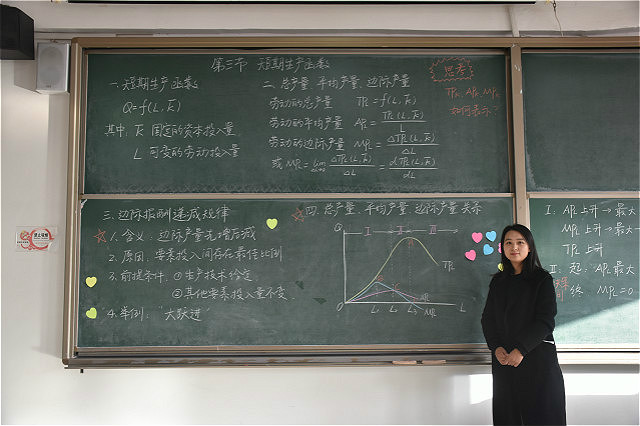 第三节 短期生产函数
一、短期生产函数
Q=f(L,K̄)
其中,K̄ 固定的资本投入量
L 可变的劳动投入量
二、总产量、平均产量、边际产量
劳动的总产量 TPL=f(L,K̄)
劳动的平均产量 APL=TPL(L,K̄)/L
劳动的边际产量 MPL=ΔTPL(L,K̄)/ΔL
或 MPL=lim ΔTPL(L,K̄)/ΔL=dTPL(L,K̄)/dL
思考
TPL、APL、MPL
如何表示?
三、边际报酬递减规律
☆1.含义:边际产量先增后减
2.原因:要素投入间存在最佳比例
3.前提条件:①生产技术给定
②其他要素投入量不变
4.举例:“大跃进”
四、总产量、平均产量、边际产量关系
Q
Ⅰ Ⅱ Ⅲ
TPL
APL
MPL
O L1 L2 L3 L
Ⅰ:APL上升→最大
MPL上升→最大
TPL上升
Ⅱ:起:APL最大
终 MPL=0
禁止吸烟